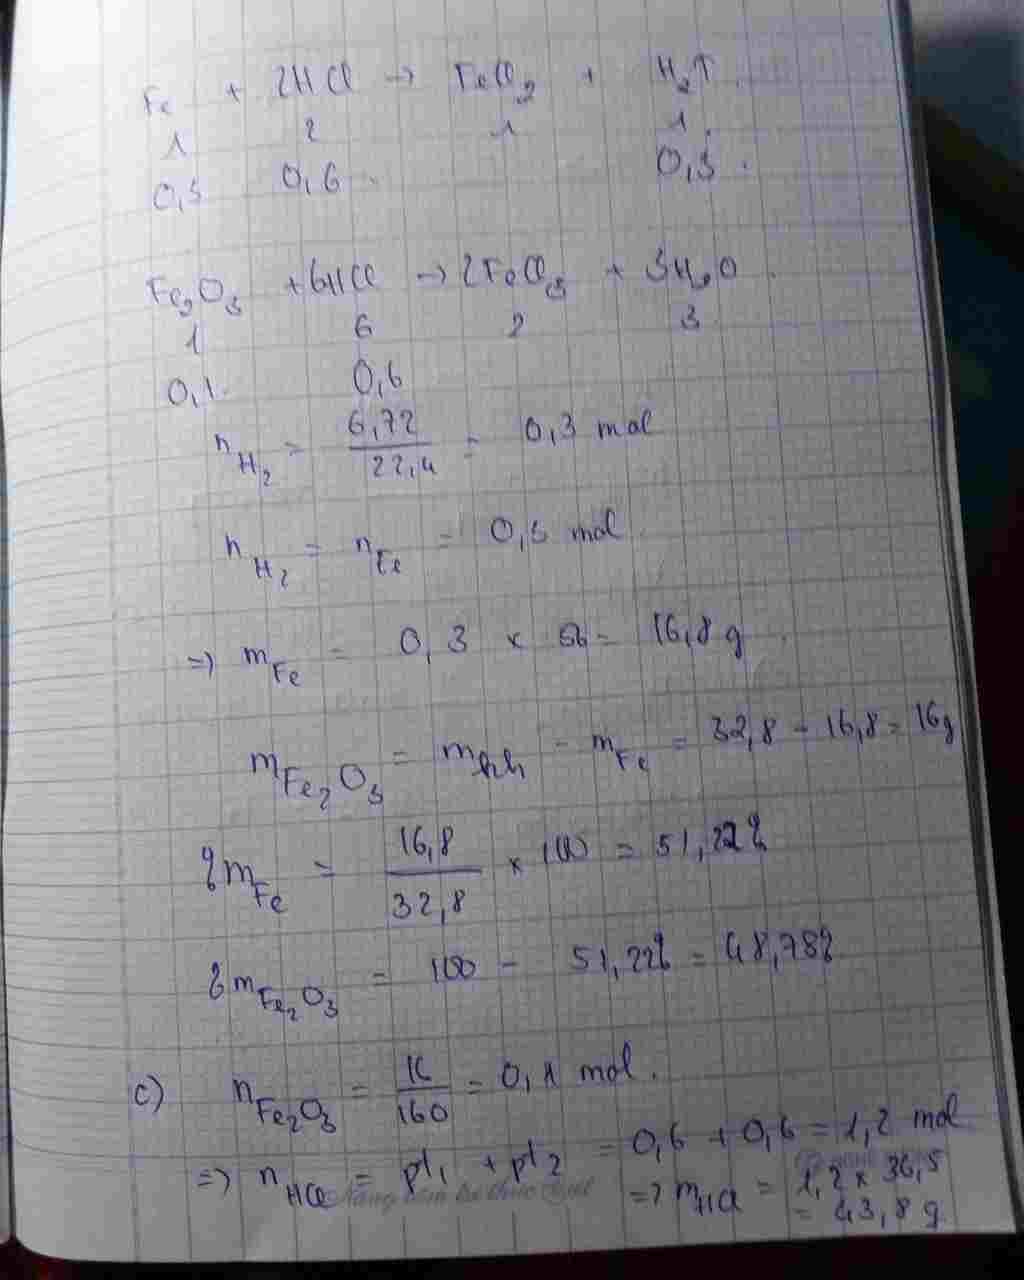 Fe + 2HCl → FeCl₂ + H₂↑.
1 2 1 1.
0,3 0,6. 0,3.
Fe₂O₃ + 6HCl → 2FeCl₃ + 3H₂O.
1 6 2 3
0,1. 0,6
n H₂ = 6,72 / 22,4 = 0,3 mol
n H₂ = n Fe = 0,3 mol.
=> m Fe = 0,3 x 56 = 16,8 g.
m Fe₂O₃ = m hh - m Fe = 32,8 - 16,8 = 16g
% m Fe = 16,8 / 32,8 x 100 = 51,22%
% m Fe₂O₃ = 100 - 51,22% = 48,78%
c) n Fe₂O₃ = 16 / 160 = 0,1 mol.
=> n HCl = pt₁ + pt₂ = 0,6 + 0,6 = 1,2 mol
=> m HCl = 1,2 x 36,5
= 43,8 g